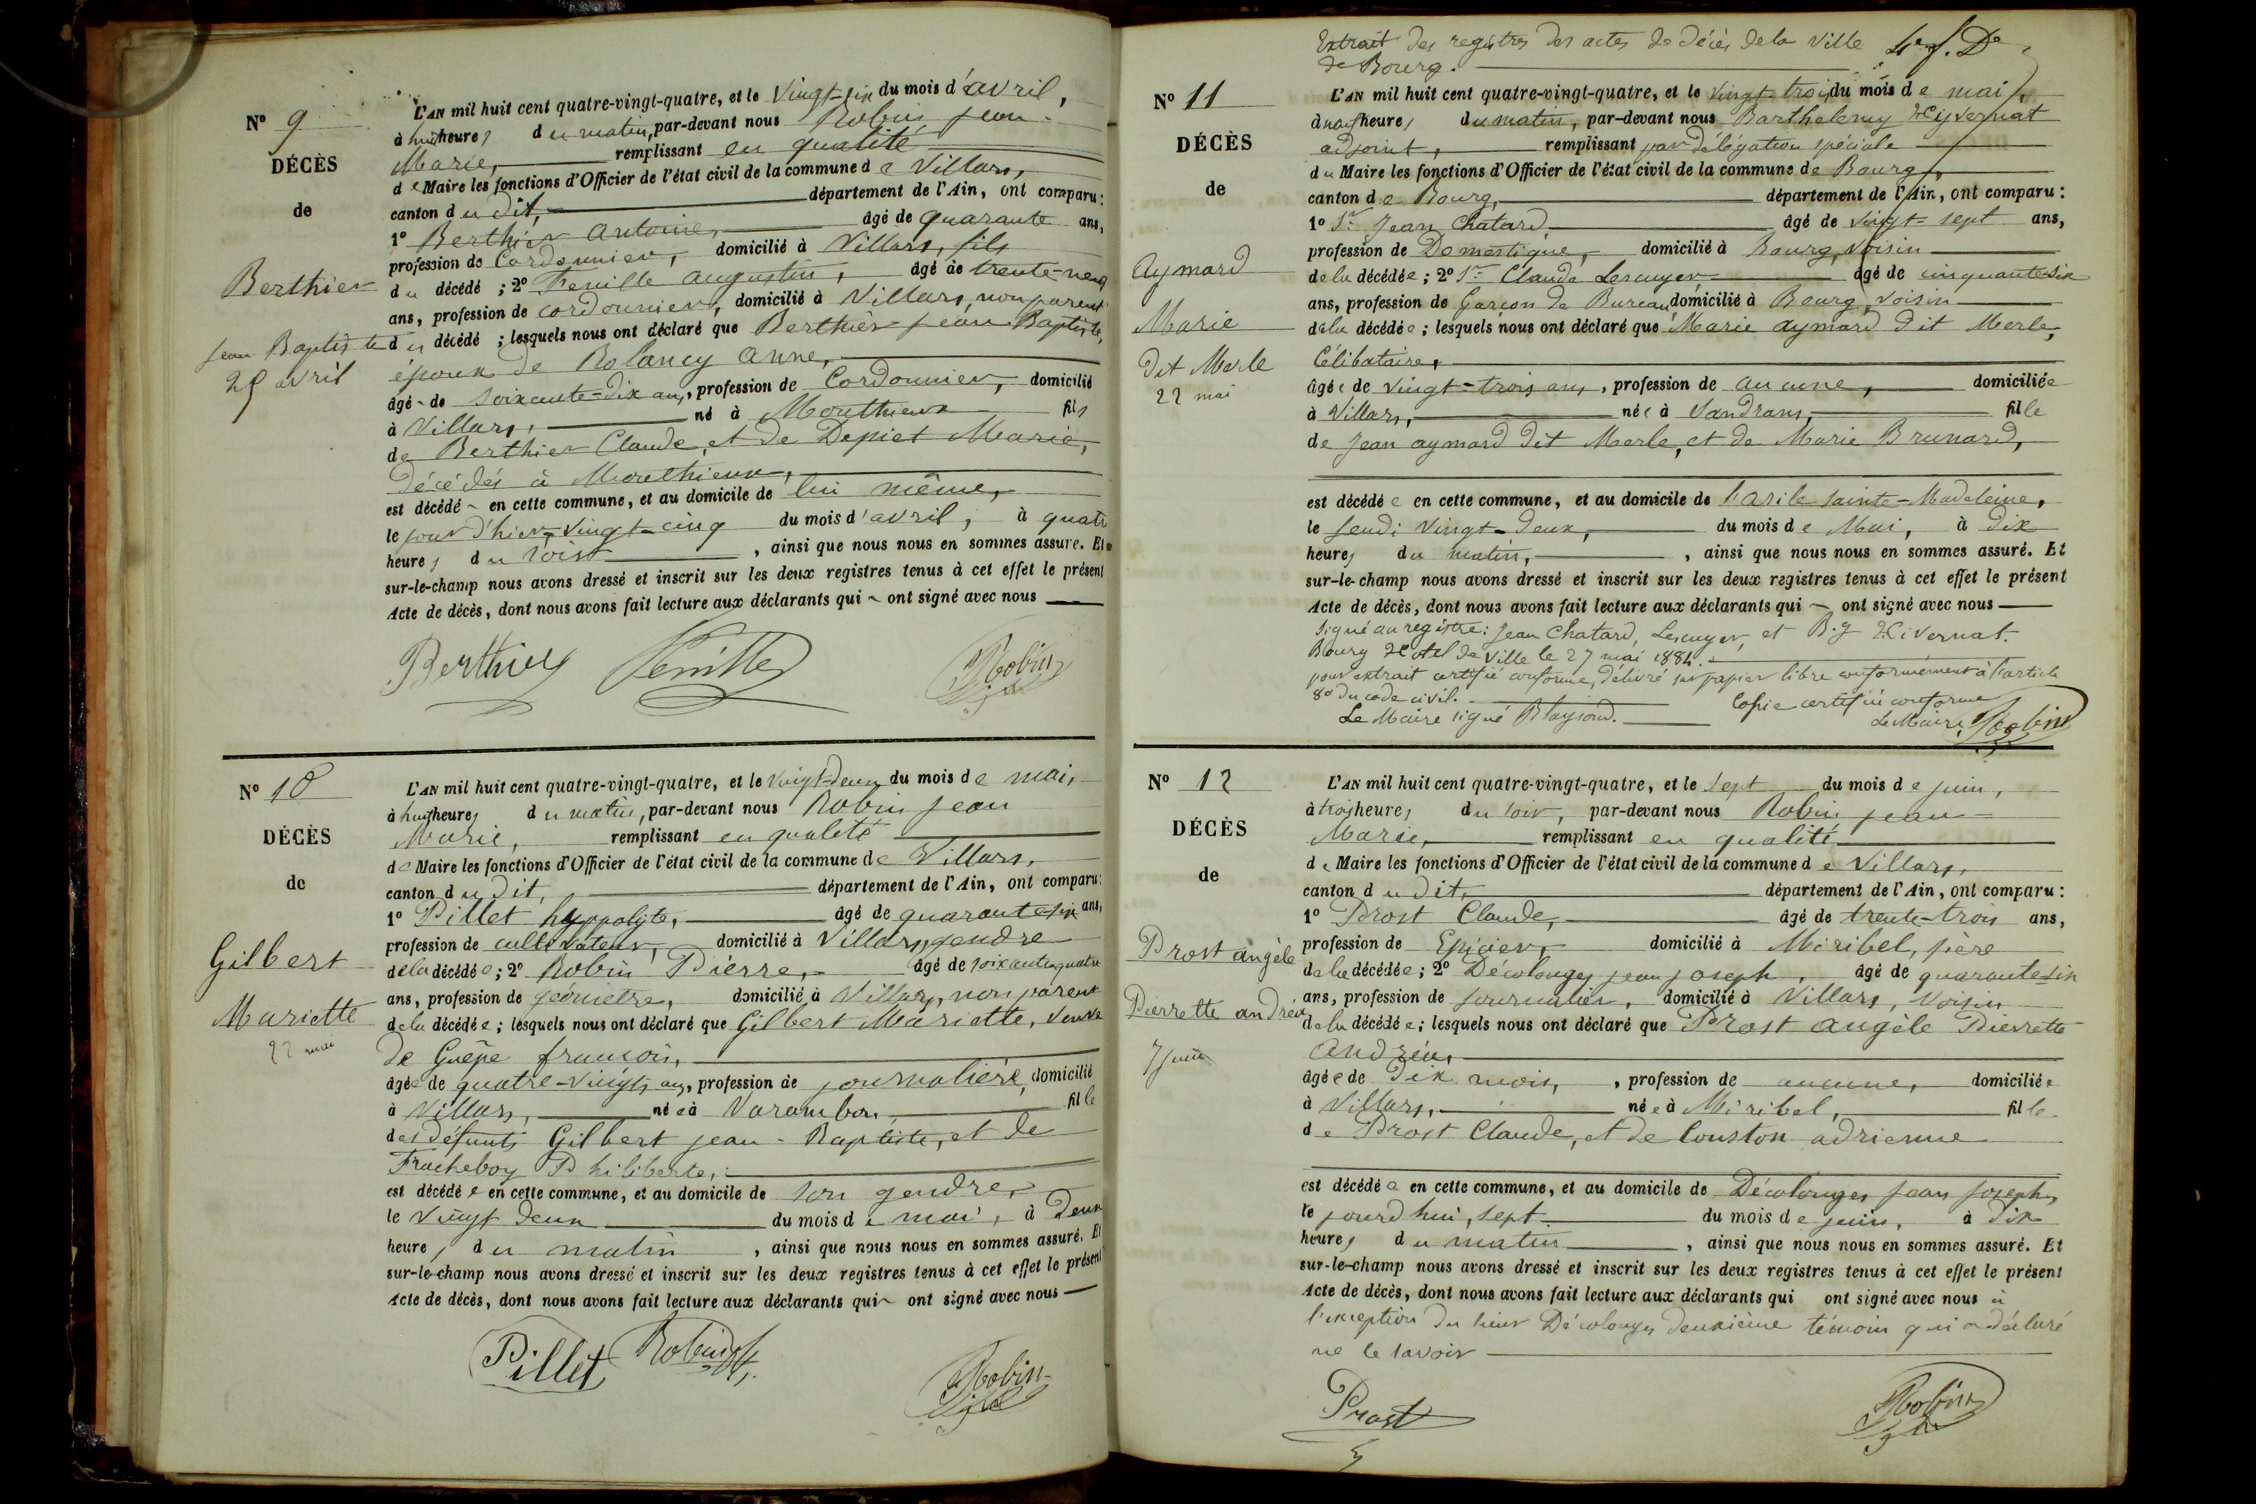 Nº 9
DÉCÈS
de
Berthier
Jean Baptiste
25 avril
L'AN mil huit cent quatre-vingt-quatre, et le Vingt-six du mois d'avril,
à huit heures du matin, par-devant nous Robin Jean-
Marie, remplissant en qualité
de Maire les fonctions d'Officier de l'état civil de la commune de Villars,
canton du dit, département de l'Ain, ont comparu:
1º Berthier Antoine, âgé de quarante ans,
profession de Cordonnier, domicilié à Villars, fils
du décédé ; 2º Feuille Augustin, âgé de trente-neuf
ans, profession de cordonnier, domicilié à Villars, non parent
du décédé ; lesquels nous ont déclaré que Berthier Jean Baptiste,
époux de Rolancy Anne,
âgé de soixante-dix ans, profession de Cordonnier, domicilié
à Villars, né à Monthieux fils
de Berthier Claude, et de Depiet Marie,
décédés à Monthieux,
est décédé en cette commune, et au domicile de lui même,
le jour d'hier vingt-cinq du mois d'avril, à quatre
heures du soir , ainsi que nous nous en sommes assuré. Et
sur-le-champ nous avons dressé et inscrit sur les deux registres tenus à cet effet le présent
Acte de décès, dont nous avons fait lecture aux déclarants qui ont signé avec nous
Berthier Feuille Robin
Nº 10
DÉCÈS
de
Gilbert
Mariette
22 mai
L'AN mil huit cent quatre-vingt-quatre, et le Vingt-deux du mois de mai,
à huit heures du matin, par-devant nous Robin Jean
Marie, remplissant en qualité
de Maire les fonctions d'Officier de l'état civil de la commune de Villars,
canton du dit, département de l'Ain, ont comparu:
1º Pillet hyppolyte, âgé de quarante six ans,
profession de cultivateur, domicilié à Villars, gendre
de la décédée; 2º Robin Pierre, âgé de soixante quatre
ans, profession de géomètre, domicilié à Villars, non parent
de la décédée ; lesquels nous ont déclaré que Gilbert Mariette, Veuve
de Guêpe françois,
âgée de quatre-vingts ans, profession de journalière, domicilié
à Villars, née à Varambon, fille
des défunts Gilbert Jean-Baptiste, et de
Fracheboy Philiberte,
est décédée en cette commune, et au domicile de son gendre,
le vingt deux du mois de mai, à deux
heures du matin , ainsi que nous nous en sommes assuré. Et
sur-le-champ nous avons dressé et inscrit sur les deux registres tenus à cet effet le présent
Acte de décès, dont nous avons fait lecture aux déclarants qui ont signé avec nous
Pillet Robin Robin
Extrait des registres des actes de décès de la Ville
de Bourg.
Nº 11
DÉCÈS
de
Aymard
Marie
dit Merle
22 mai
L'AN mil huit cent quatre-vingt-quatre, et le vingt-trois du mois de mai,
à neuf heures du matin, par-devant nous Barthelemy Hyvernat
adjoint, remplissant par délégation spéciale
du Maire les fonctions d'Officier de l'état civil de la commune de Bourg,
canton de Bourg, département de l'Ain, ont comparu:
1º Sr Jean Chatard, âgé de vingt-sept ans,
profession de Domestique, domicilié à Bourg, voisin
de la décédée; 2º Sr Claude Lescuyer âgé de cinquante six
ans, profession de Garçon de Bureau, domicilié à Bourg, voisin
de la décédée ; lesquels nous ont déclaré que Marie Aymard dit Merle,
Célibataire,
âgée de vingt-trois ans, profession de aucune, domiciliée
à Villars, née à Sandrans, fille
de Jean Aymard dit Merle, et de Marie Brunard,
est décédée en cette commune, et au domicile de l'asile Sainte-Madeleine,
le Jeudi Vingt-deux, du mois de Mai, à dix
heures du matin, , ainsi que nous nous en sommes assuré. Et
sur-le-champ nous avons dressé et inscrit sur les deux registres tenus à cet effet le présent
Acte de décès, dont nous avons fait lecture aux déclarants qui ont signé avec nous
Signé au registre: Jean Chatard, Lescuyer, et B. Hivernat.
Bourg Hôtel de Ville le 27 mai 1884.
pour extrait certifié conforme, délivré sur papier libre conformément à l'article
80 du code civil.
Le Maire signé
Copie certifiée conforme
Le Maire, Robin
Nº 12
DÉCÈS
de
Prost angèle
Pierrette andréa
7 juin
L'AN mil huit cent quatre-vingt-quatre, et le Sept du mois de juin,
à trois heures du soir, par-devant nous Robin Jean
Marie, remplissant en qualité
de Maire les fonctions d'Officier de l'état civil de la commune de Villars,
canton du dit, département de l'Ain, ont comparu:
1º Prost Claude, âgé de trente-trois ans,
profession de Epicier, domicilié à Miribel, père
de la décédée; 2º Décolonges Jean Joseph, âgé de quarante six
ans, profession de journalier, domicilié à Villars, Voisin
de la décédée; lesquels nous ont déclaré que Prost angèle Pierrette
Andréa,
âgée de dix mois, , profession de aucune, domiciliée
à Villars, née à Miribel, fille
de Prost Claude, et de Couston adrienne
est décédée en cette commune, et au domicile de Décolonges Jean Joseph,
le jourdhui, sept du mois de juin, à dix
heures du matin , ainsi que nous nous en sommes assuré. Et
sur-le-champ nous avons dressé et inscrit sur les deux registres tenus à cet effet le présent
Acte de décès, dont nous avons fait lecture aux déclarants qui ont signé avec nous à
l'exception du sieur Décolonges deuxième témoin qui a déclaré
ne le savoir
Prost Robin